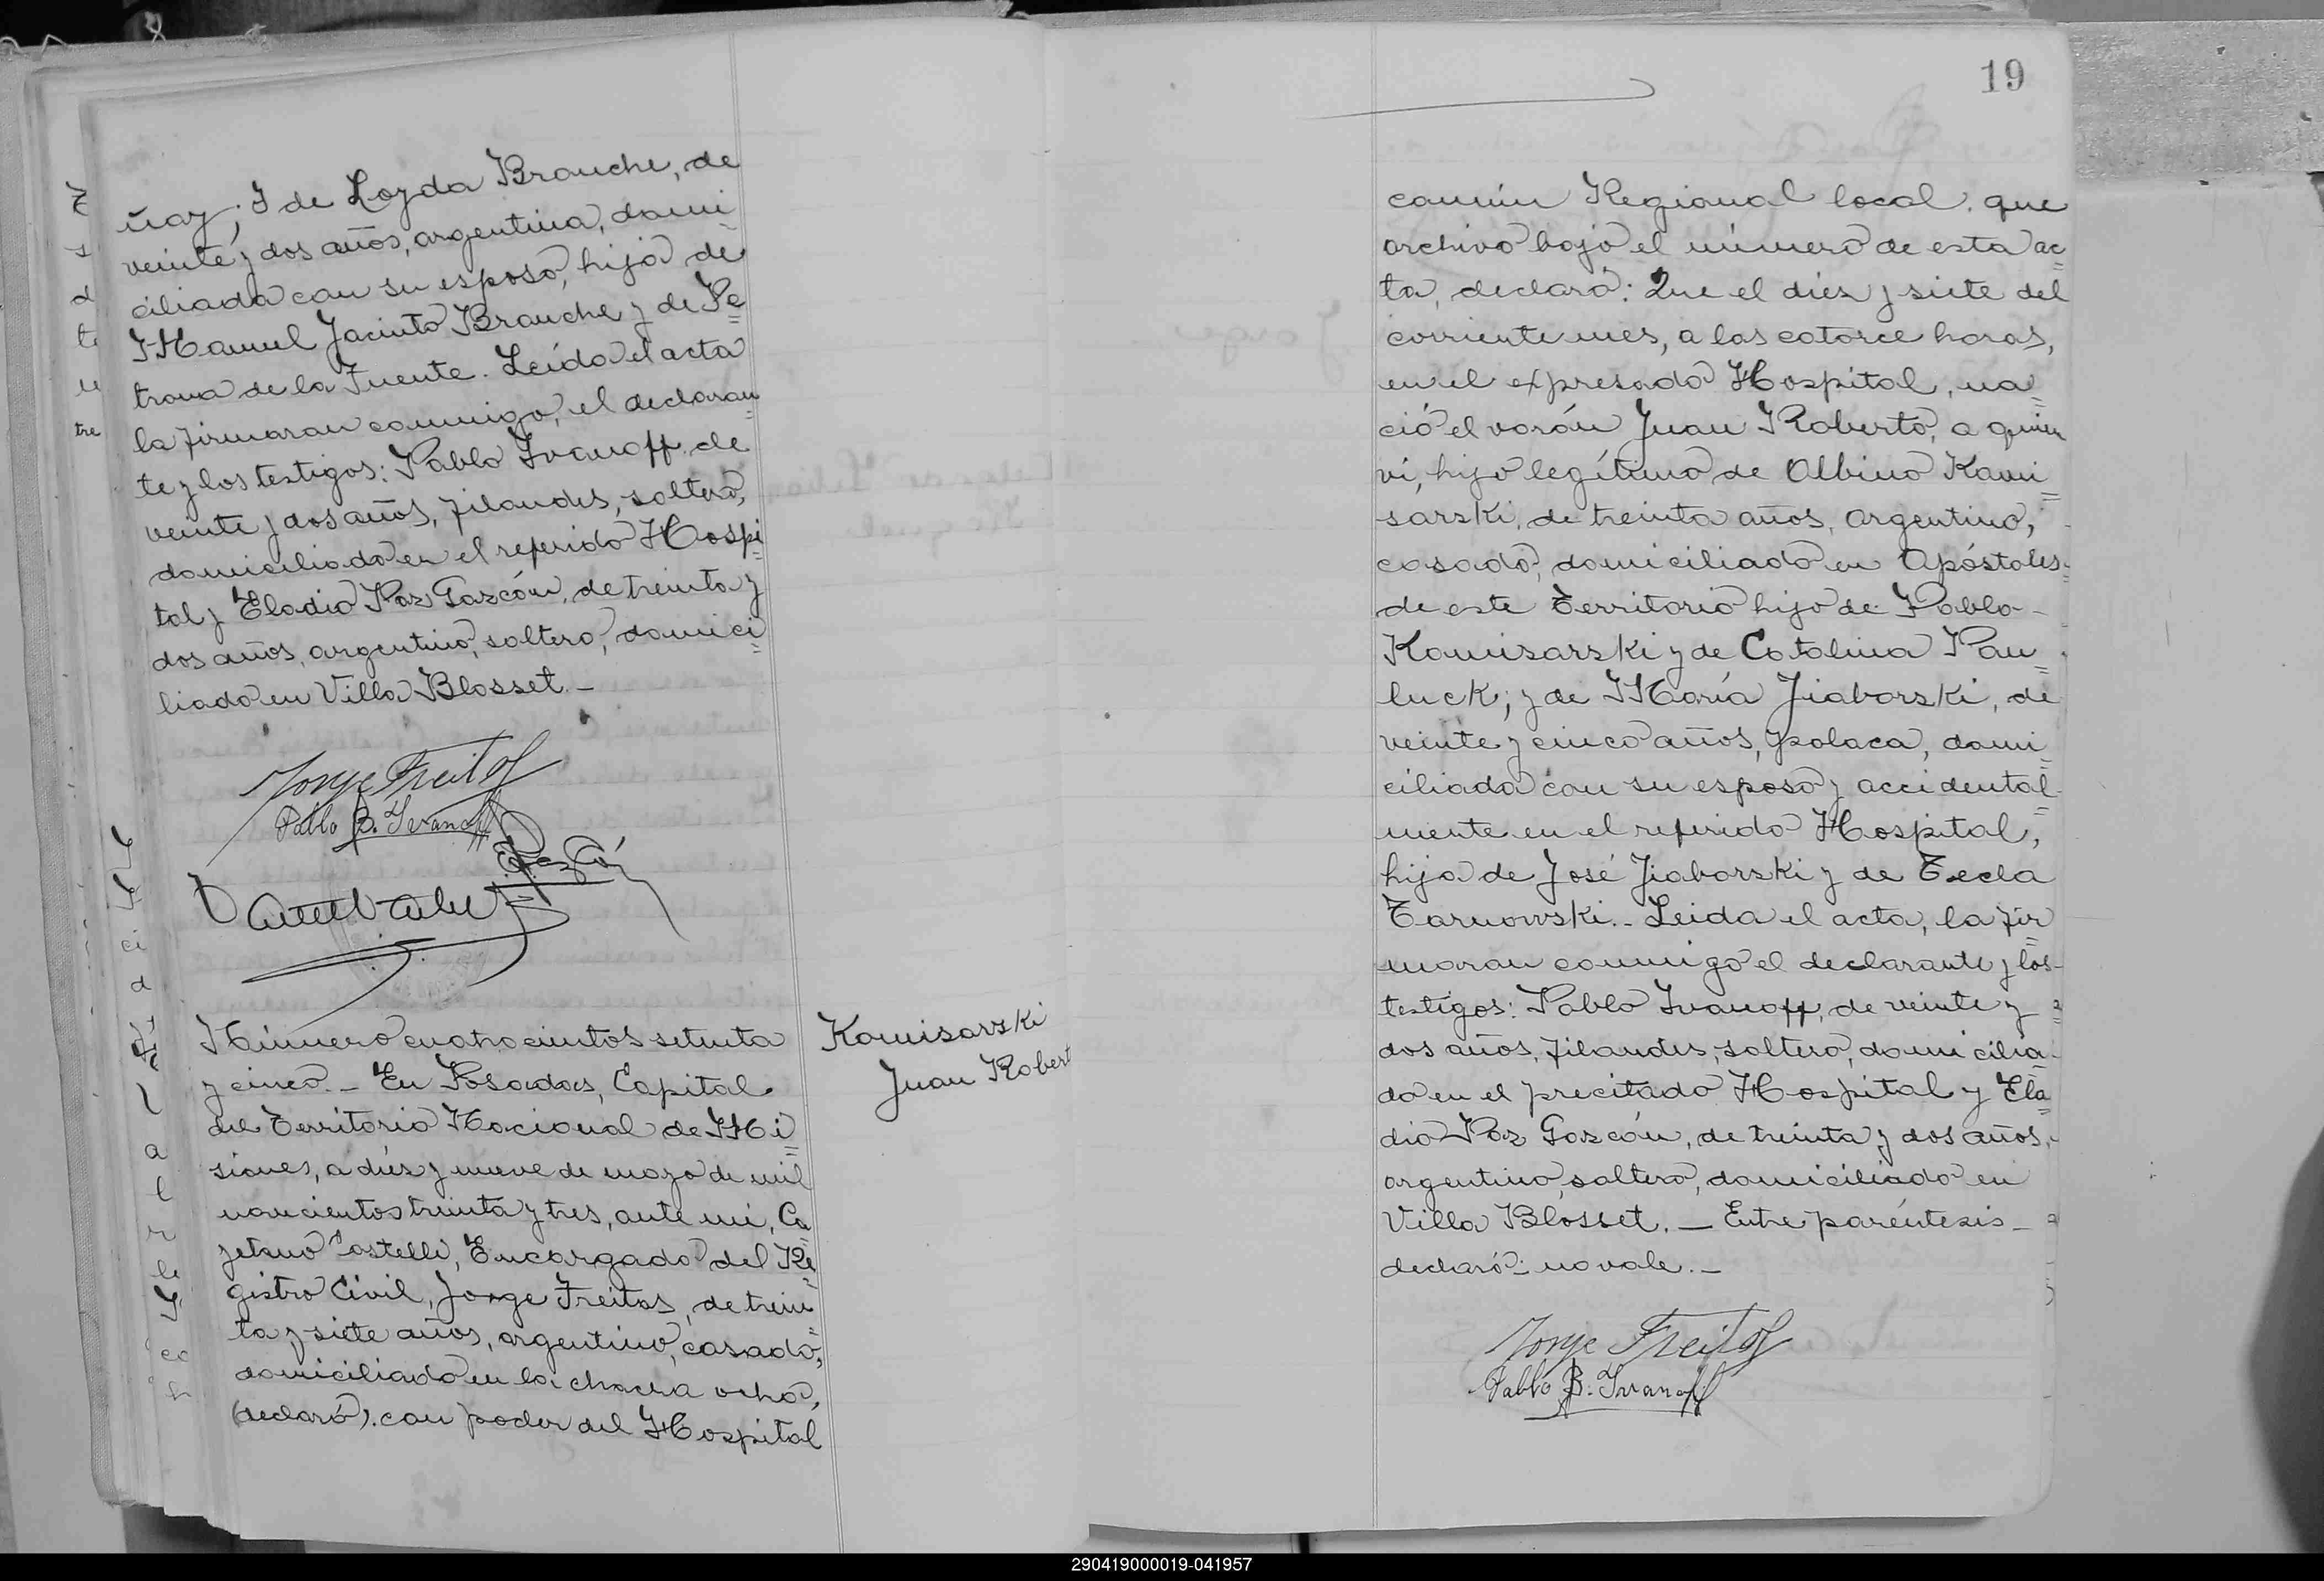 ñay; I de Loyda Brauche, de
veinte y dos años, argentina, domi
ciliada con su esposo, hija de
Manuel Jacinto Brauche y de Pe
trona de la Fuente. Leída el acta
la firmaran conmigo, el declaran
te y los testigos: Pablo Ivanoff de
veinte y dos años, filandes, soltero,
domiciliado en el referido Hospi
tal y Eladio Paz Gazcón, de treinta y
dos años, argentino, soltero, domici
liado en Villa Blosset.—
Jorge Freitas
Pablo B. Ivanoff
Número cuatrocientos setenta
y cinco.— En Posadas, Capital
del Territorio Nacional de Mi
siones, a diez y nueve de mayo de mil
novecientos treinta y tres, ante mi, Ca
yetano Castelli, Encargado del Re
gistro Civil, Jorge Freitas, de trein
ta y siete años, argentino, casado,
domiciliado en la chacra ocho,
(declaró). con poder del Hospital
Komisarski
Juan Robert
19
común Regional local. que
archivo bajo el número de esta ac
ta, declaró: Que el diez y siete del
corriente mes, a las catorce horas,
en el expresado Hospital, na
ció el varón Juan Roberto, a quien
vi, hijo legítimo de Albino Komi
sarski, de treinta años, argentino,
casado, domiciliado en Apóstoles
de este Territorio hijo de Pablo
Komisarski y de Catalina Pau
luck; y de María Jiaborski, de
veinte y cinco años, polaca, domi
ciliada con su esposo y accidental
mente en el referido Hospital,
hija de José Jiaborski y de Tecla
Tarnowski.- Leida el acta, la fir
maran conmigo el declarante y los
testigos: Pablo Ivanoff, de veinte y
dos años, filandes, soltero, domicilia
do en el precitado Hospital y Ela
dio Paz Gazcón, de treinta y dos años,
argentino, soltero, domiciliado en
Villa Blosset.— Entre paréntesis—
declaró: no vale.—
Jorge Freitas
Pablo B. Ivanoff
290419000019-041957